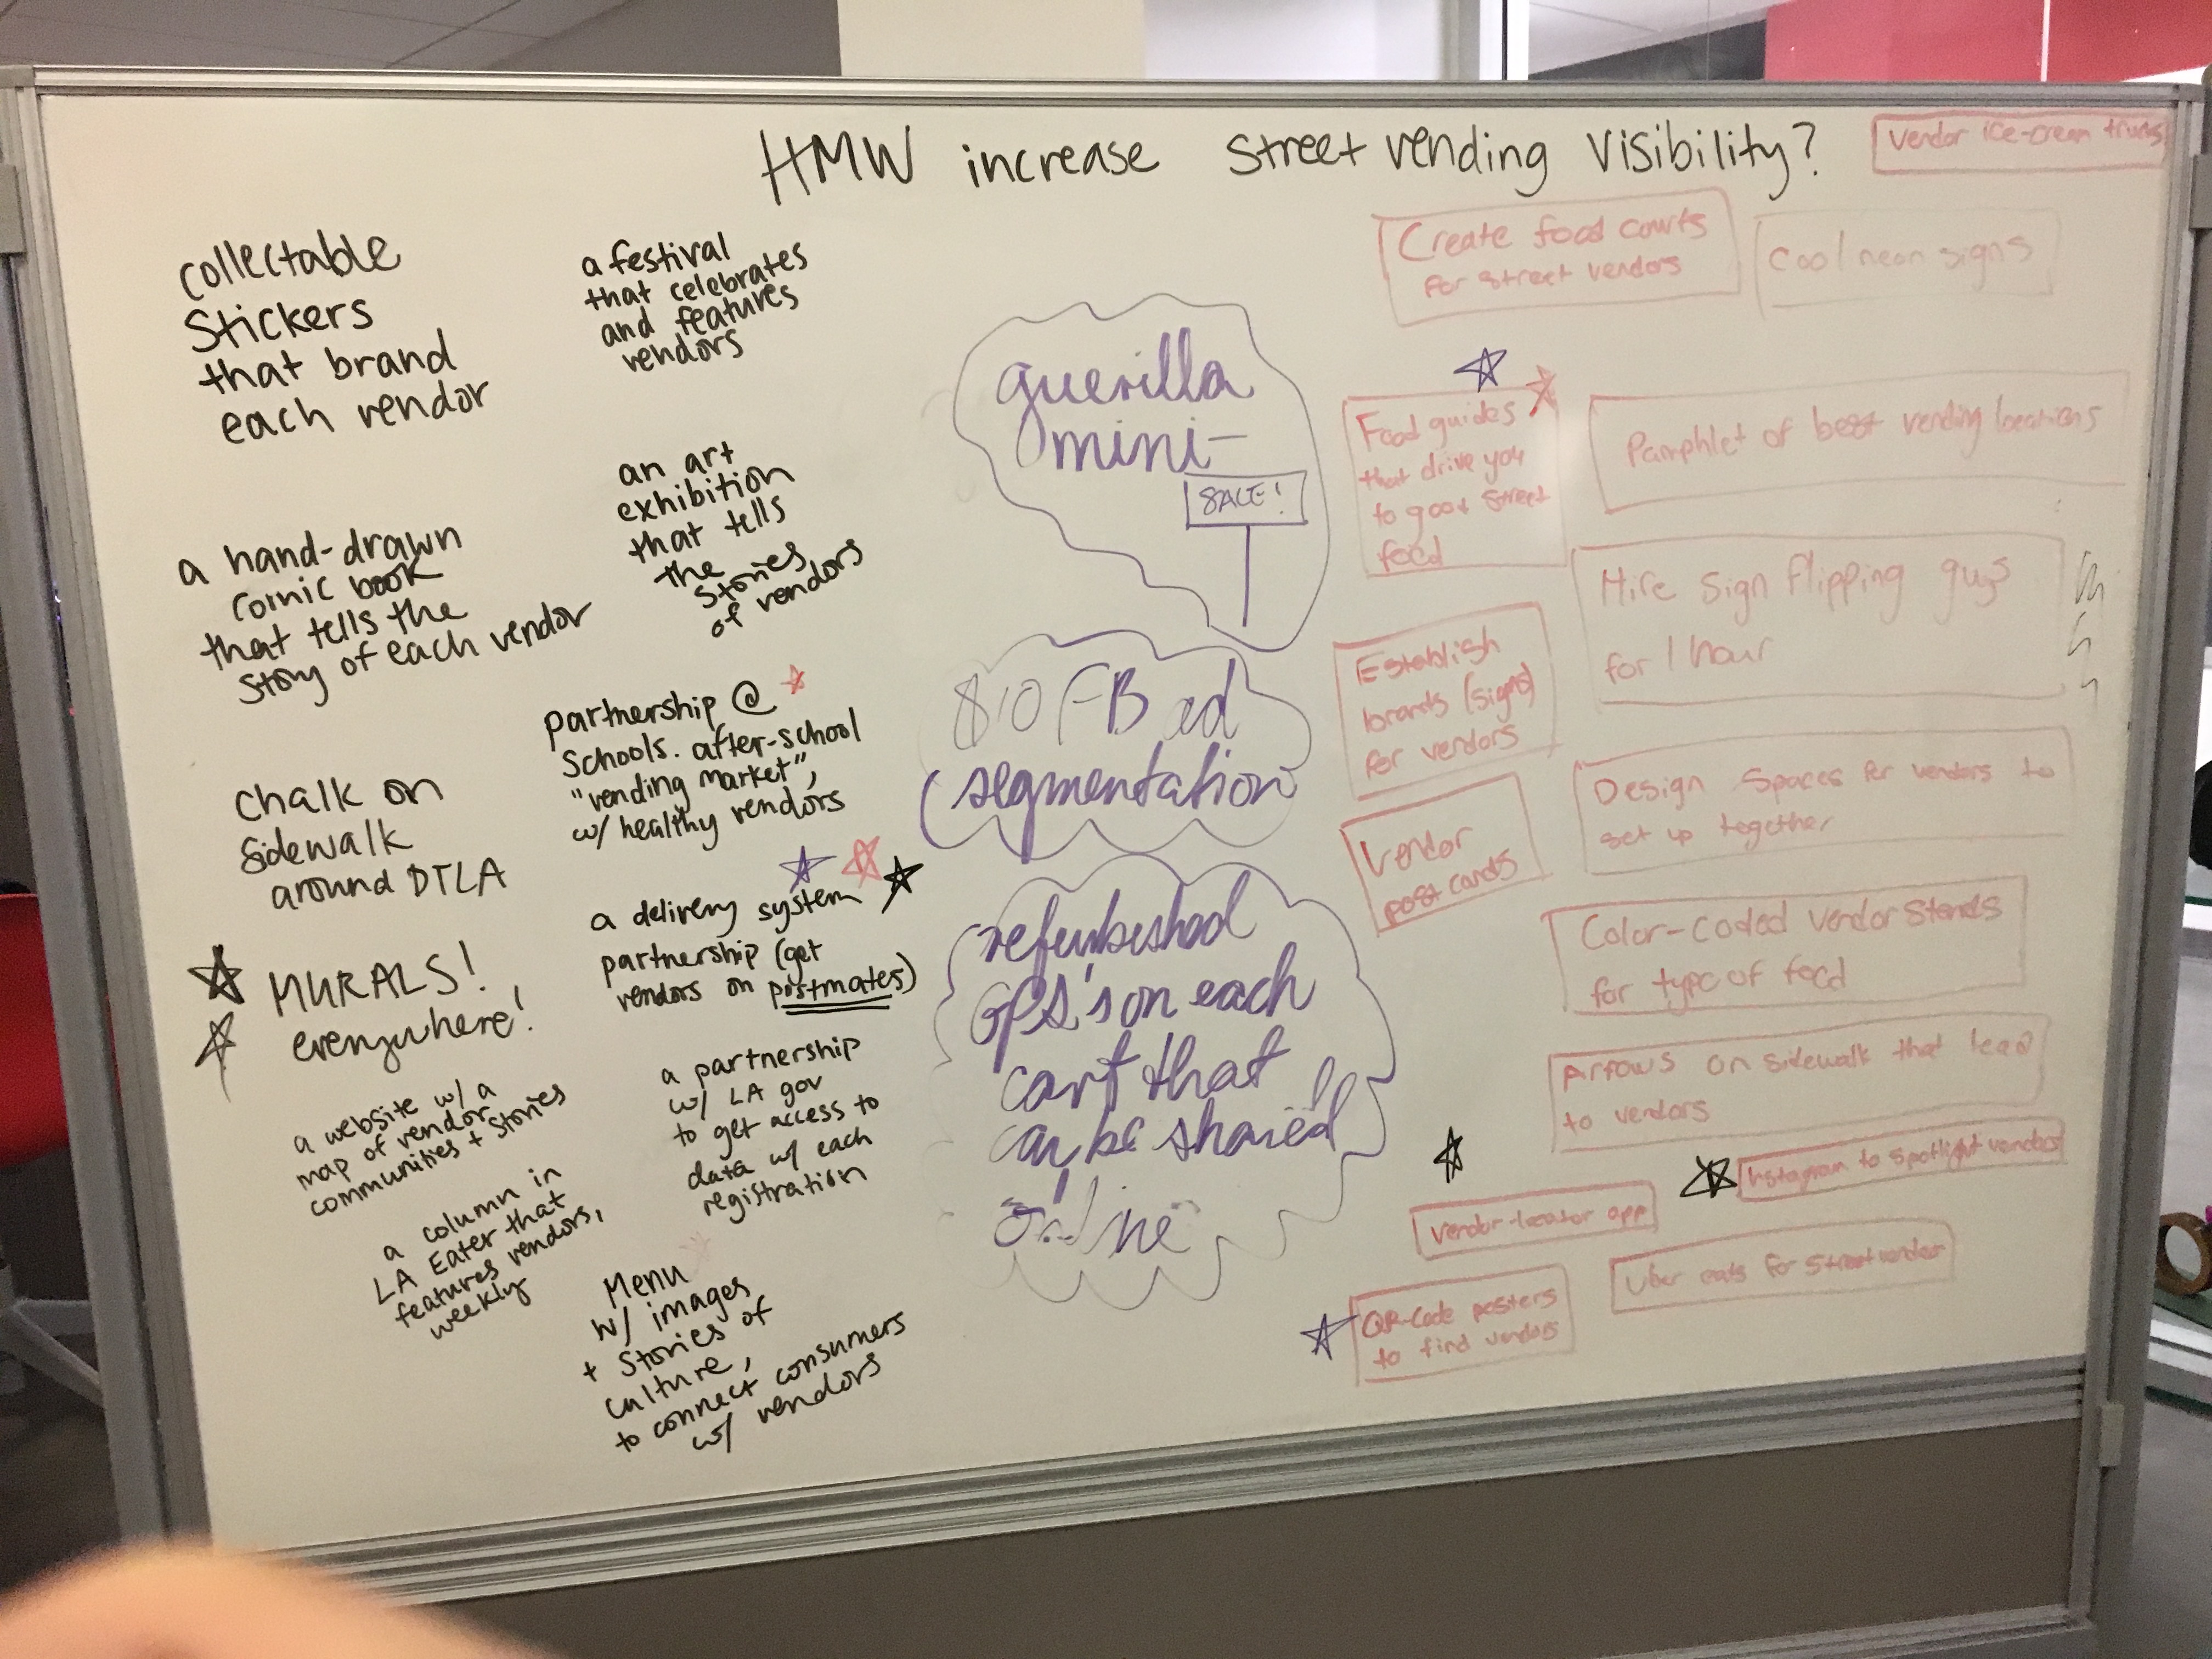 HMW increase street vending visibility?
collectable
stickers
that brand
each vendor
a hand-drawn
comic book
that tells the
story of each vendor
chalk on
sidewalk
around DTLA
MURALS!
everywhere!
a website w/ a
map of vendor
communities + stories
a column in
LA Eater that
features vendors,
weekly
a festival
that celebrates
and features
vendors
an art
exhibition
that tells
the
stories
of vendors
partnership @
schools. after-school
"vending market",
w/ healthy vendors
a delivery system
partnership (get
vendors on postmates)
a partnership
w/ LA gov
to get access to
data w/ each
registration
Menu
w/ images
+ stories of
culture,
to connect consumers
w/ vendors
guerilla
mini-
SALE!
$10 FB ad
segmentation
refurbushed
GPS's on each
cart that
can be shared
online
Vendor ice-cream trucks
Create food courts
for street vendors
Cool neon signs
Food guides
that drive you
to good street
food
Pamphlet of best vending locations
Hire sign flipping guys
for 1 hour
Establish
brands (signs)
for vendors
Design spaces for vendors to
set up together
Vendor
post cards
Color-coded vendor stands
for type of food
Arrows on sidewalk that lead
to vendors
Instagram to spotlight vendors
Vendor-locator app
Uber eats for street vendor
QR-Code posters
to find vendors